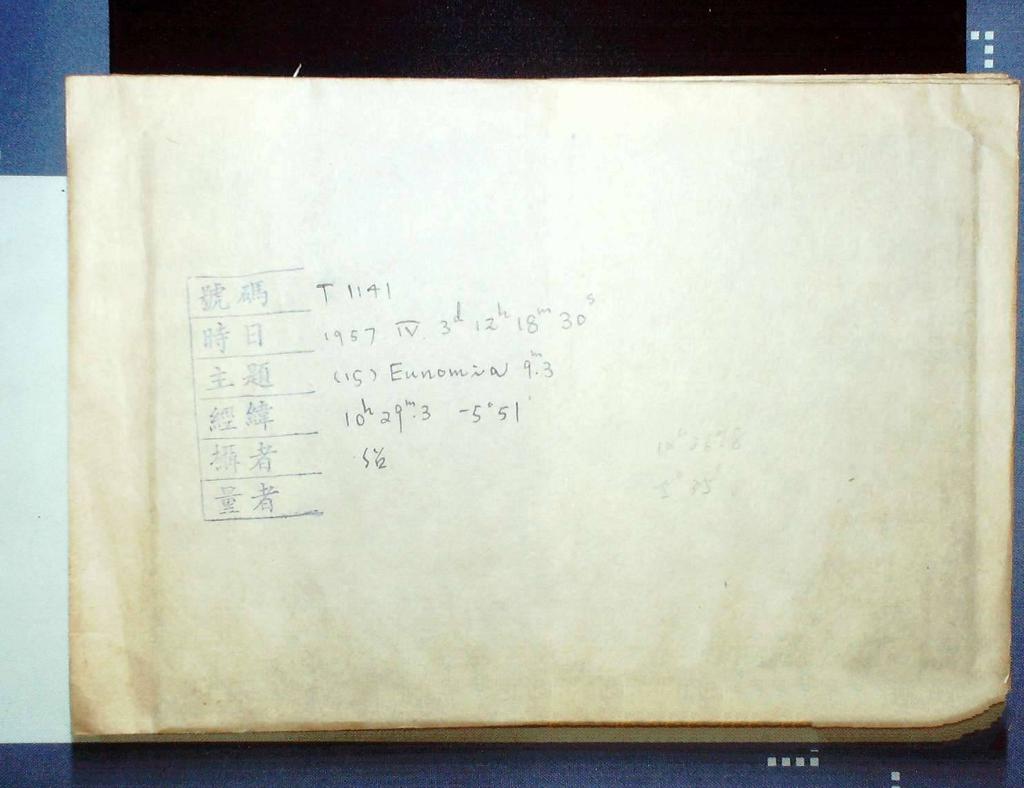 號碼 T 1141
時日 1957 IV. 3d 12h 18m 30s
主題 (15) Eunomia 9m.3
經緯 10h 29m.3 -5°51'
攝者
量者